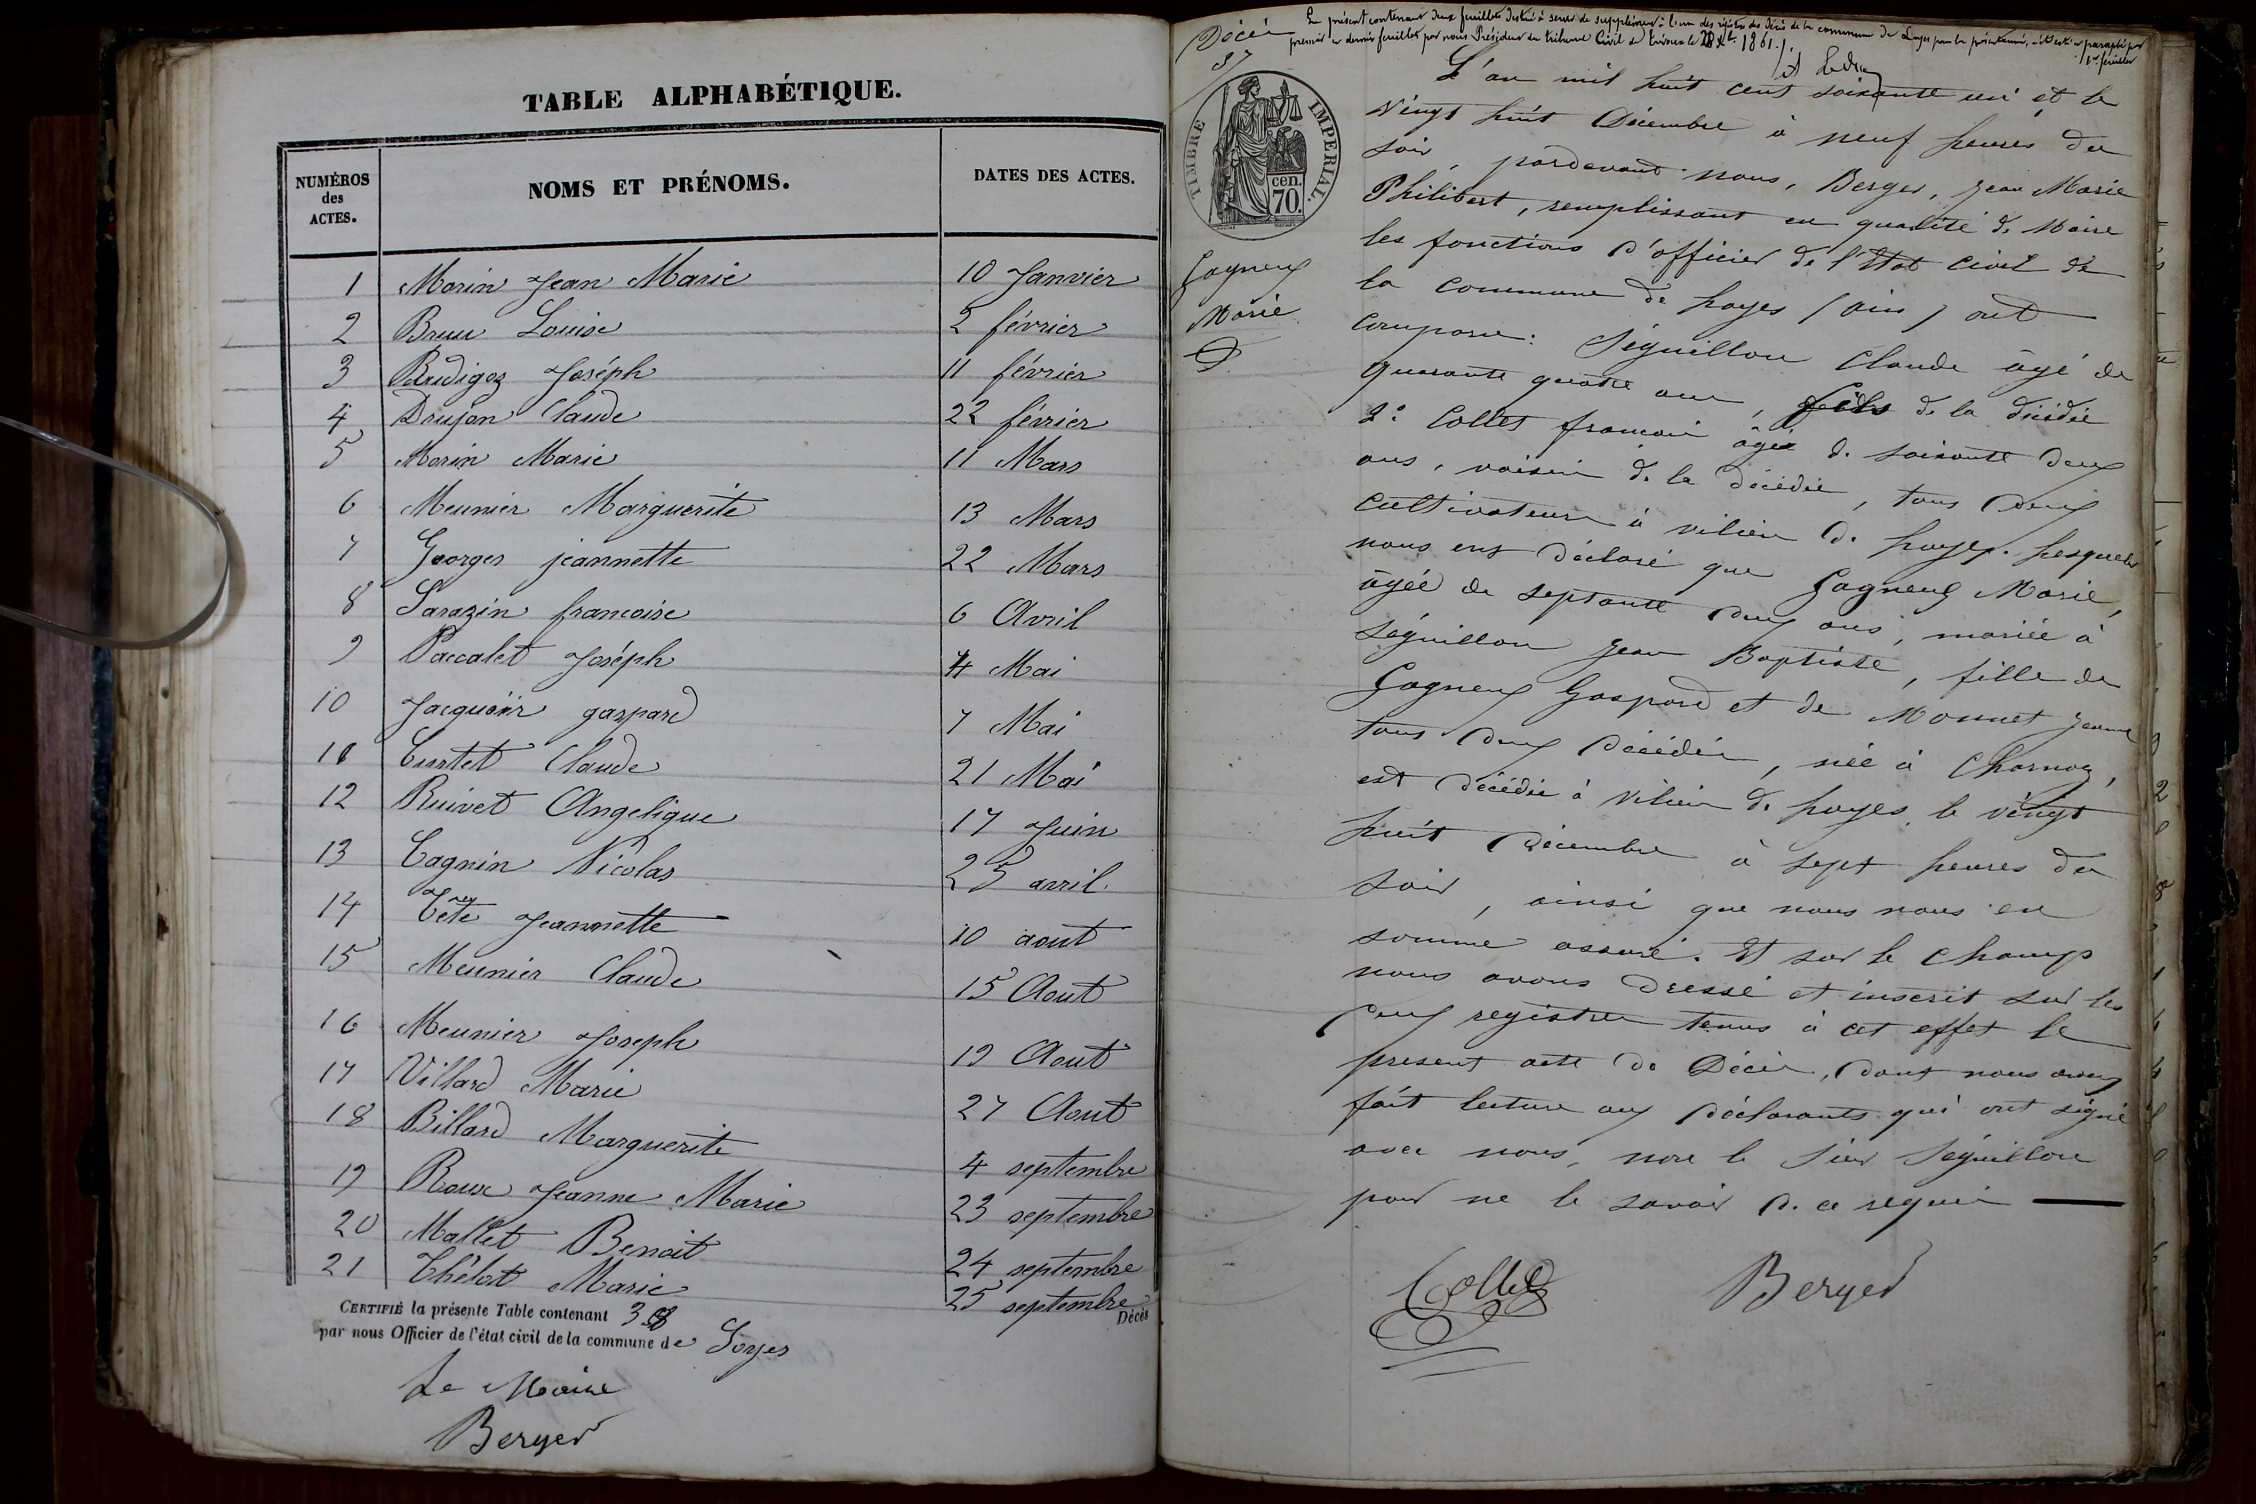 TABLE ALPHABÉTIQUE.
NUMÉROS des ACTES. NOMS ET PRÉNOMS. DATES DES ACTES.
1 Morin Jean Marie 10 Janvier
2 Brun Louise 2 février
3 Bridigoz Joséph 11 février
4 Drujon Claude 22 février
5 Morin Marie 11 Mars
6 Meunier Marguerite 13 Mars
7 Georges jeannette 22 Mars
8 Sarazin francoise 6 Avril
9 Paccalet Joséph 4 Mai
10 Jacquoir gaspard 7 Mai
11 Curtet Claude 21 Mai
12 Ruivet Angelique 17 Juin
13 Cagnin Nicolas 25 avril
14 Tête Jeannette 10 aout
15 Meunier Claude 15 Aout
16 Meunier Joseph 19 Aout
17 Villard Marie 27 Aout
18 Billard Marguerite 4 septembre
19 Roux Jeanne Marie 23 septembre
20 Mallet Benoit 24 septembre
21 Thélot Marie 25 septembre
CERTIFIÉ la présente Table contenant 38 Décès
par nous Officier de l'état civil de la commune de Loyes
Le Maire
Berger
Le présent contenant deux feuillets destiné à servir de supplément à l'un des régistres des décès de la commune de Loyes pour la présente année, a été coté et paraphé par
premier et dernier feuillet par nous Président du tribunal Civil de Trévoux le 28 Xbre 1861.
1er feuillet
Décès
37
TIMBRE IMPERIAL.
70 cen.
Gagneux
Marie
L'an mil huit cent soixante un et le
vingt huit Décembre à neuf heures du
soir, pardevant nous, Berger, Jean Marie
Philibert, remplissant en qualité de Maire
les fonctions d'officier de l'Etat civil de
la commune de Loyes (ain) ont
comparu: Séguillon Claude âgé de
quarante quatre ans, fils de la décédée
2° Collet francois âgé de soixante deux
ans, voisin de la décédée, tous deux
cultivateurs à vilieu de Loyes. Lesquels
nous ont déclaré que Gagneux Marie,
âgée de septante deux ans, mariée à
Séguillon Jean Baptiste, fille de
Gagneux Gaspard et de Monnet Jeanne
tous deux décédés, née à Charnoz,
est décédée à Vilieu de Loyes le vingt
huit Décembre à sept heures du
soir, ainsi que nous nous en
somme assuré. Et sur le champ
nous avons dressé et inscrit sur les
deux registres tenus à cet effet le
present acte de Décès, dont nous avons
fait lecture aux déclarants qui ont signé
avec nous, non le sieur Séguillon
pour ne le savoir de ce requis
Collet Berger